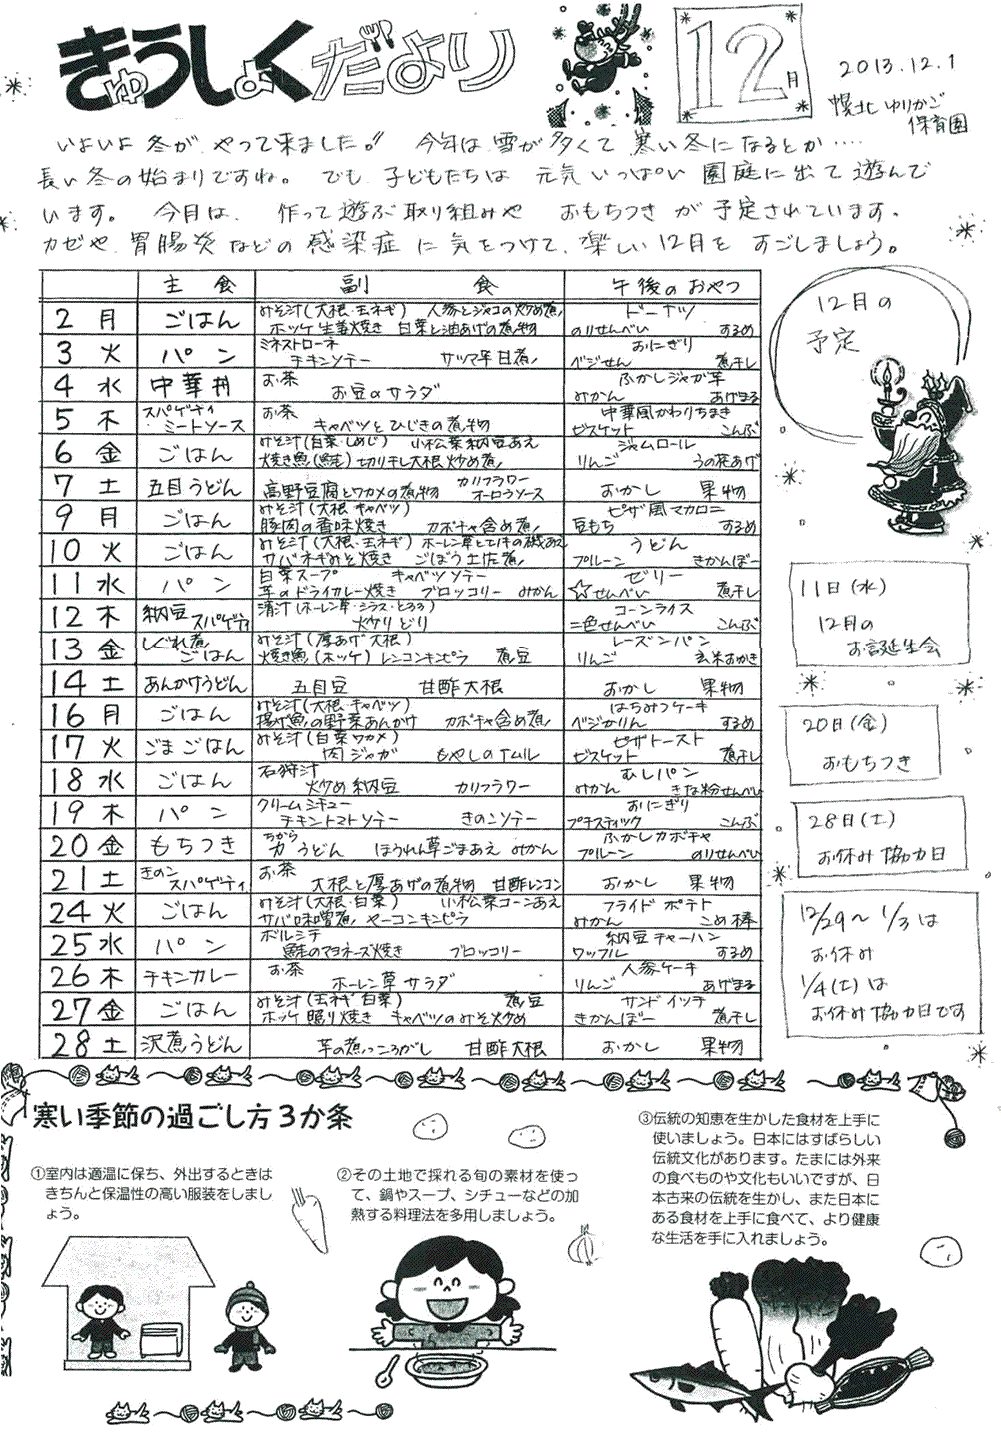 きゅうしょくだより
12月
2013.12.1
幌北ゆりかご
保育園
いよいよ冬が、やって来ました!! 今年は雪が多くて寒い冬になるとか‥‥
長い冬の始まりですね。でも子どもたちは元気いっぱい園庭に出て遊んで
います。今月は、作って遊ぶ取り組みや おもちつきが予定されています。
カゼや胃腸炎などの感染症に気をつけて、楽しい12月をすごしましょう。
主食 副食 午後のおやつ
2 月 ごはん みそ汁(大根・玉ネギ) 人参とジャコの炒め煮 ホッケ生姜焼き 白菜と油あげの煮物 ドーナツ のりせんべい するめ
3 火 パン ミネストローネ チキンソテー サツマ芋甘煮 おにぎり ベジせん 煮干し
4 水 中華丼 お茶 お豆のサラダ ふかしジャガ芋 みかん あげまる
5 木 スパゲティミートソース お茶 キャベツとひじきの煮物 中華風かわりちまき ビスケット こんぶ
6 金 ごはん みそ汁(白菜・しめじ) 小松菜納豆あえ 焼き魚(鮭) 切り干し大根炒め煮 ジャムロール りんご うの花あげ
7 土 五目うどん 高野豆腐とワカメの煮物 カリフラワーオーロラソース おかし 果物
9 月 ごはん みそ汁(大根 キャベツ) 豚肉の香味焼き カボチャ含め煮 ピザ風マカロニ 豆もち するめ
10 火 ごはん みそ汁(大根・玉ネギ) ホーレン草と 磯あえ サバネギみそ焼き ごぼう土佐煮 うどん プルーン きかんぼー
11 水 パン 白菜スープ キャベツソテー 芋のドライカレー焼き ブロッコリー みかん ゼリー ☆せんべい 煮干し
12 木 納豆スパゲティ 清汁(ホーレン草・シラス・とろろ) 炒り どり コーンライス 二色せんべい こんぶ
13 金 しぐれ煮ごはん みそ汁(厚あげ 大根) 焼き魚(ホッケ) レンコンキンピラ 煮豆 レーズンパン りんご 玄米おかき
14 土 あんかけうどん 五目豆 甘酢大根 おかし 果物
16 月 ごはん みそ汁(大根 キャベツ) 揚げ魚の野菜あんかけ カボチャ含め煮 はちみつケーキ ベジかりん するめ
17 火 ごまごはん みそ汁(白菜 ワカメ) 肉ジャガ もやしのナムル ピザトースト ビスケット 煮干し
18 水 ごはん 石狩汁 炒め納豆 カリフラワー むしパン みかん きな粉せんべい
19 木 パン クリームシチュー チキントマトソテー きのこソテー おにぎり プチスティック こんぶ
20 金 もちつき 力うどん ちから ほうれん草ごまあえ みかん ふかしカボチャ プルーン のりせんべい
21 土 きのこスパゲティ お茶 大根と厚あげの煮物 甘酢レンコン おかし 果物
24 火 ごはん みそ汁(大根・白菜) 小松菜コーンあえ サバ味噌煮 やーコンキンピラ フライドポテト みかん こめ棒
25 水 パン ボルシチ 鮭のマヨネーズ焼き ブロッコリー 納豆チャーハン ワッフル するめ
26 木 チキンカレー お茶 ホーレン草サラダ 人参ケーキ りんご あげまる
27 金 ごはん みそ汁(玉ネギ 白菜) 煮豆 ホッケ照り焼き キャベツのみそ炒め サンドイッチ きかんぼー 煮干し
28 土 沢煮うどん 芋の煮っころがし 甘酢大根 おかし 果物
12月の
予定
11日(水)
12月の
お誕生会
20日(金)
おもちつき
28日(土)
お休み協力日
12/29〜1/3は
お休み
1/4(土)は
お休み協力日です
寒い季節の過ごし方3か条
①室内は適温に保ち、外出するときは
きちんと保温性の高い服装をしまし
ょう。
②その土地で採れる旬の素材を使っ
て、鍋やスープ、シチューなどの加
熱する料理法を多用しましょう。
③伝統の知恵を生かした食材を上手に
使いましょう。日本にはすばらしい
伝統文化があります。たまには外来
の食べものや文化もいいですが、日
本古来の伝統を生かし、また日本に
ある食材を上手に食べて、より健康
な生活を手に入れましょう。